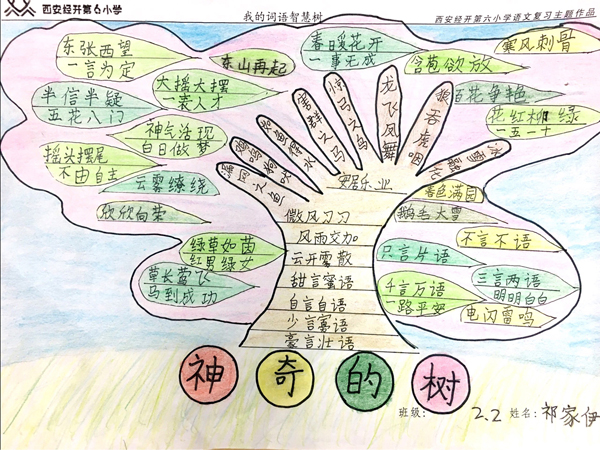 西安经开第6小学
我的词语智慧树
西安经开第六小学语文复习主题作品
东张西望
一言为定
东山再起
春暖花开
一事无成
含苞欲放
寒风刺骨
大摇大摆
一表人才
半信半疑
五花八门
神气活现
白日做梦
摇头摆尾
不由自主
云雾缭绕
欣欣向荣
绿草如茵
红男绿女
草长莺飞
马到成功
百花争艳
花红柳绿
一五一十
漏网之鱼
如鱼得水
害群之马
惊弓之鸟
龙飞凤舞
狼吞虎咽
安居乐业
微风习习
风雨交加
云开雾散
甜言蜜语
自言自语
少言寡语
豪言壮语
春色满园
鹅毛大雪
只言片语
不言不语
千言万语
一路平安
三言两语
明明白白
电闪雷鸣
神奇的树
班级: 2.2 姓名: 祁家伊